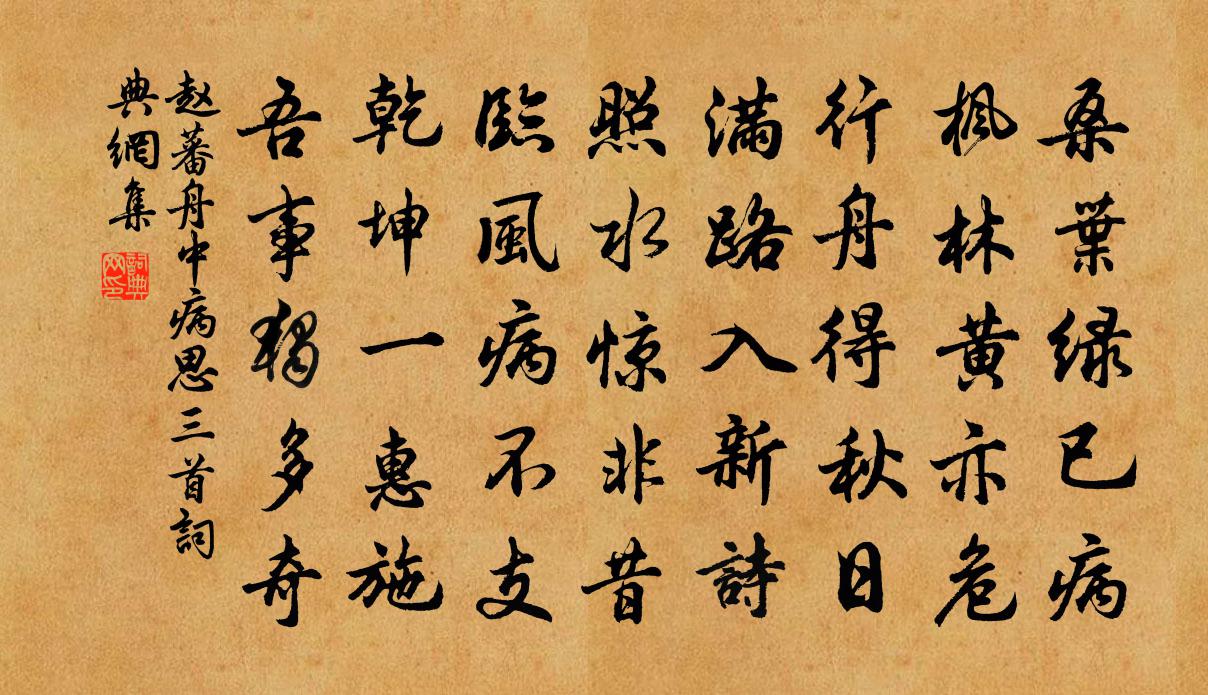 桑葉緑已病
楓林黄亦危
行舟得秋日
满路入新詩
照水惊非昔
臨風病不支
乾坤一惠施
吾事獨多奇
赵蕃舟中病思三首詞
典網集
詞典
网印